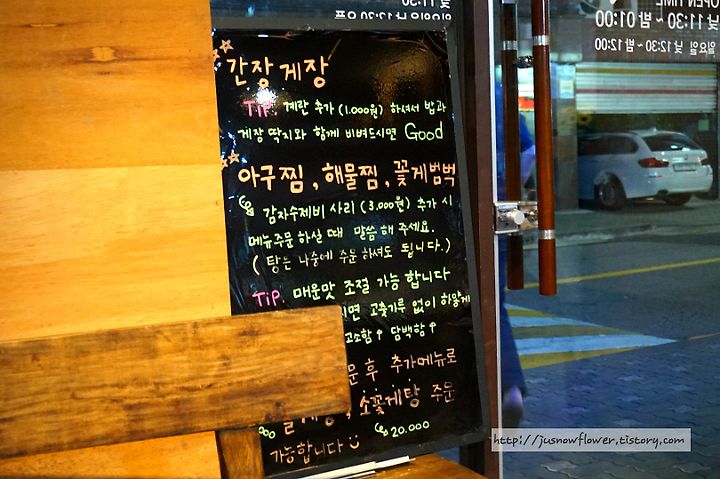 OPEN TIME
낮 11:30 ~ 밤 01:00
일요일 낮 12:30 ~ 밤 12:00
간장게장
TIP. 계란 추가 (1.000원) 하셔서 밥과
게장 딱지와 함께 비벼드시면 Good
아구찜, 해물찜, 꽃게범벅
감자수제비 사리 (3.000원) 추가 시
메뉴주문 하실 때 말씀 해 주세요.
(탕은 나중에 주문 하셔도 됩니다.)
TIP. 매운맛 조절 가능 합니다
시면 고춧가루 없이 하얗게
고소함↑ 담백함↑
문 후 추가메뉴로
, 소꽃게탕 주문
20.000
가능합니다
http://jusnowflower.tistory.com